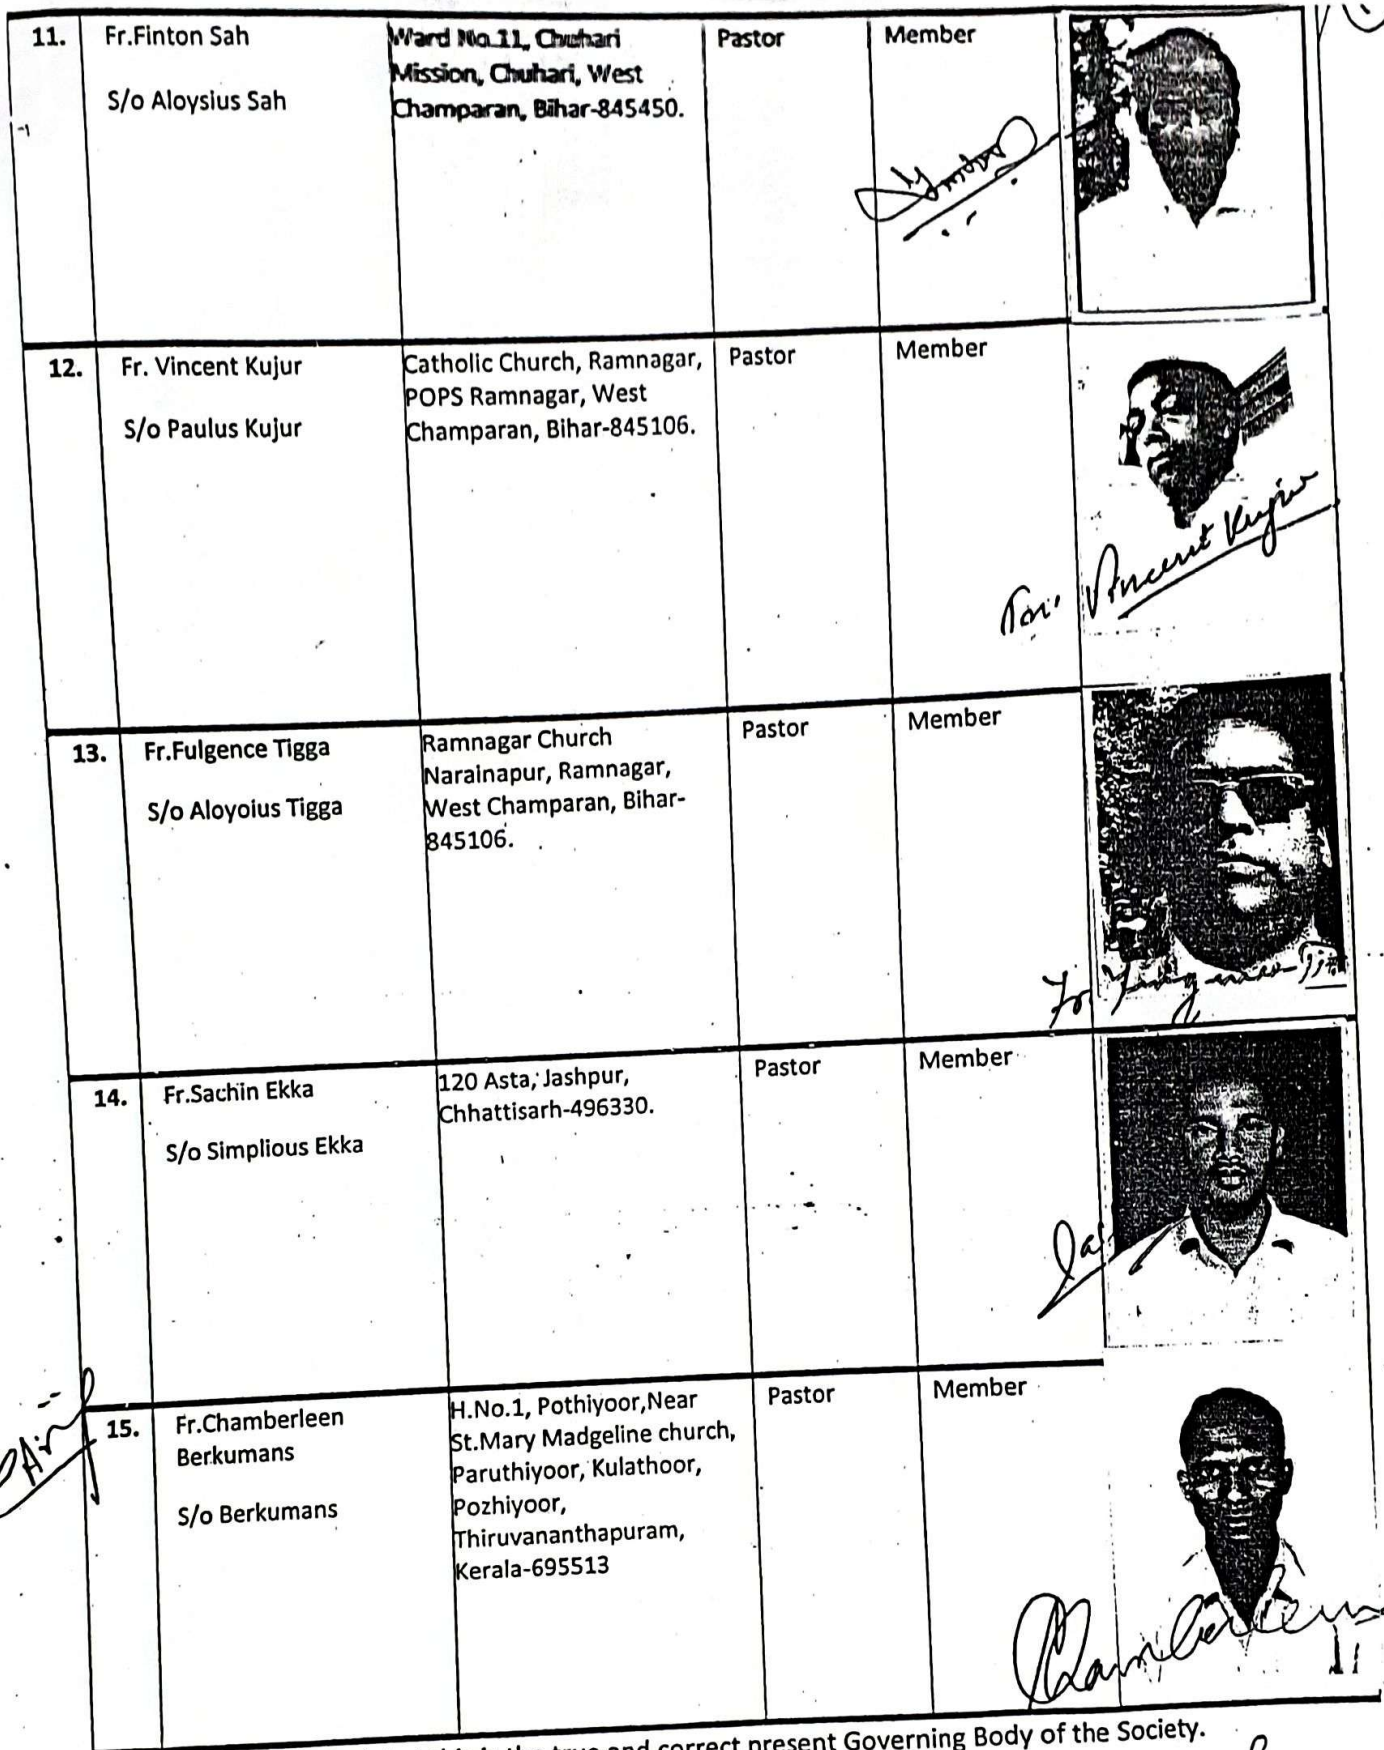 11.
Fr.Finton Sah
S/o Aloysius Sah
Ward No.11, Chuhari
Mission, Chuhari, West
Champaran, Bihar-845450.
Pastor
Member
12.
Fr. Vincent Kujur
S/o Paulus Kujur
Catholic Church, Ramnagar,
POPS Ramnagar, West
Champaran, Bihar-845106.
Pastor
Member
Vincent Kujur
13.
Fr.Fulgence Tigga
S/o Aloyoius Tigga
Ramnagar Church
Narainapur, Ramnagar,
West Champaran, Bihar-
845106.
Pastor
Member
14.
Fr.Sachin Ekka
S/o Simplious Ekka
120 Asta, Jashpur,
Chhattisarh-496330.
Pastor
Member
15.
Fr.Chamberleen
Berkumans
S/o Berkumans
H.No.1, Pothiyoor,Near
St.Mary Madgeline church,
Paruthiyoor, Kulathoor,
Pozhiyoor,
Thiruvananthapuram,
Kerala-695513
Pastor
Member
true and correct present Governing Body of the Society.